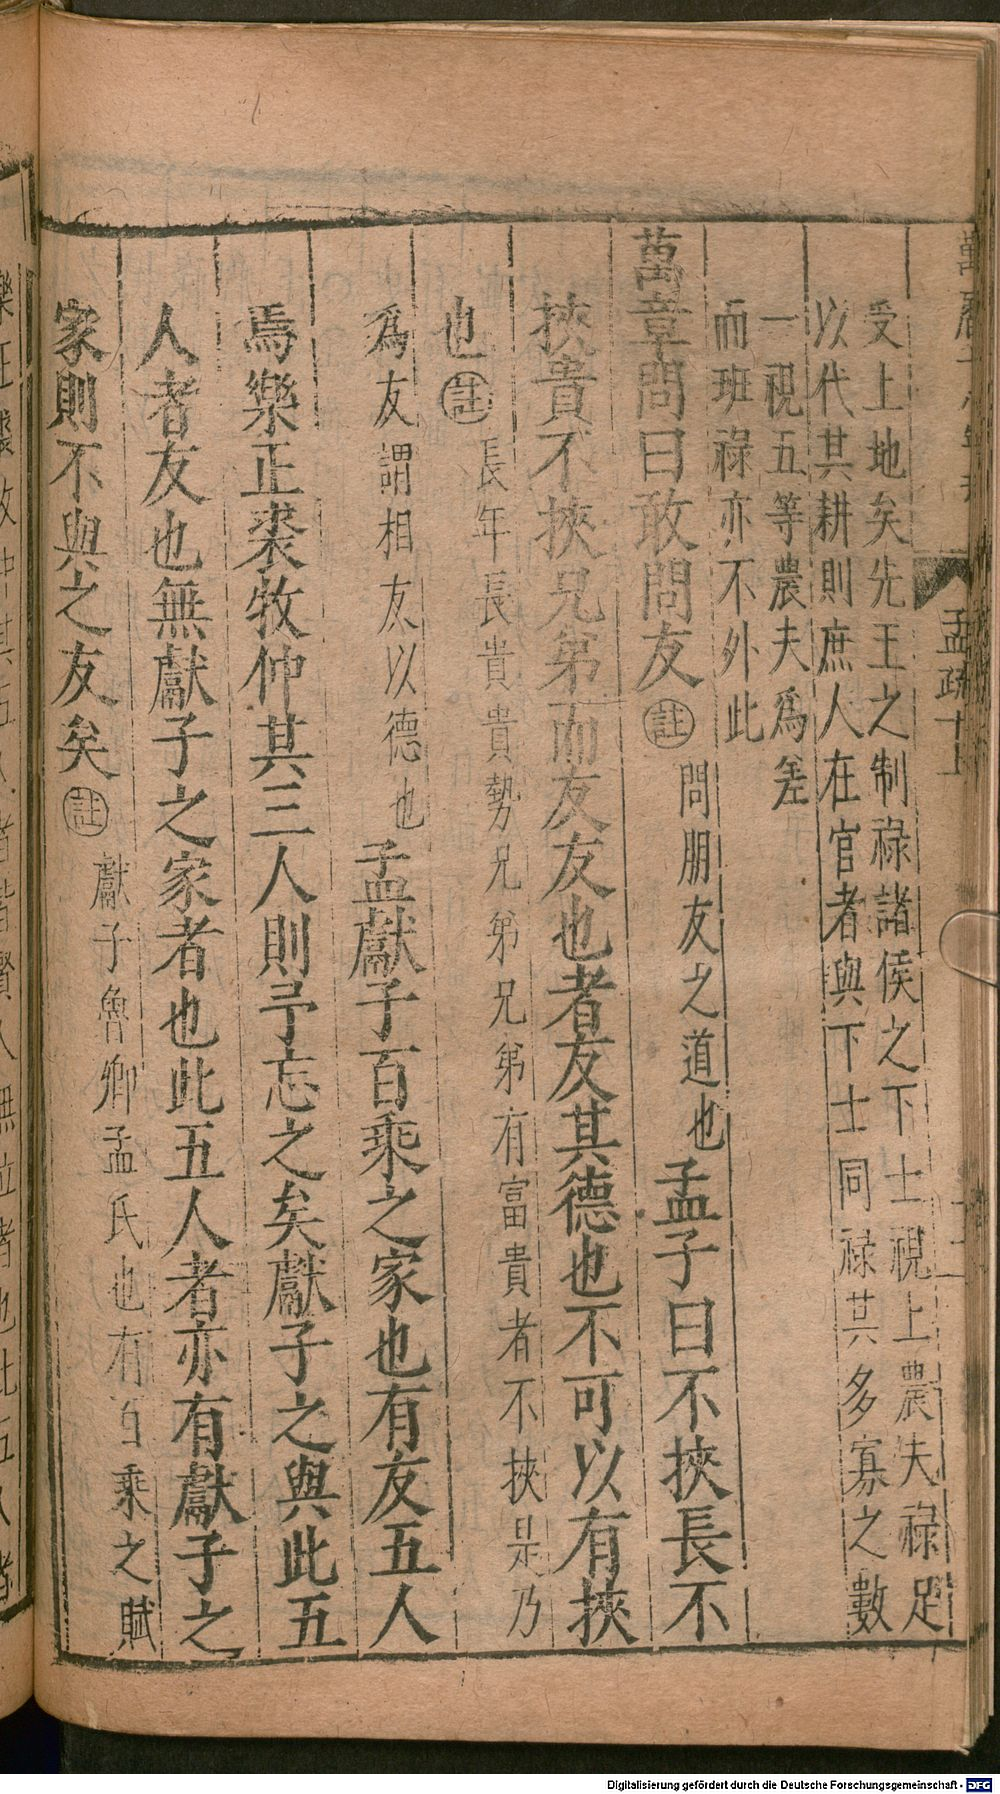 孟疏十上
受上地矣先王之制祿諸侯之下士視上農夫祿足
以代其耕則庶人在官者與下士同祿其多寡之數
一視五等農夫爲差
而班祿亦不外此
萬章問曰敢問友註問朋友之道也孟子曰不挾長不
挾貴不挾兄弟而友友也者友其德也不可以有挾
也註長年長貴貴勢兄弟兄弟有富貴者不挾是乃
爲友謂相友以德也孟獻子百乘之家也有友五人
焉樂正裘牧仲其三人則予忘之矣獻子之與此五
人者友也無獻子之家者也此五人者亦有獻子之
家則不與之友矣註獻子魯卿孟氏也有百乘之賦
Digitalisierung gefördert durch die Deutsche Forschungsgemeinschaft - DFG